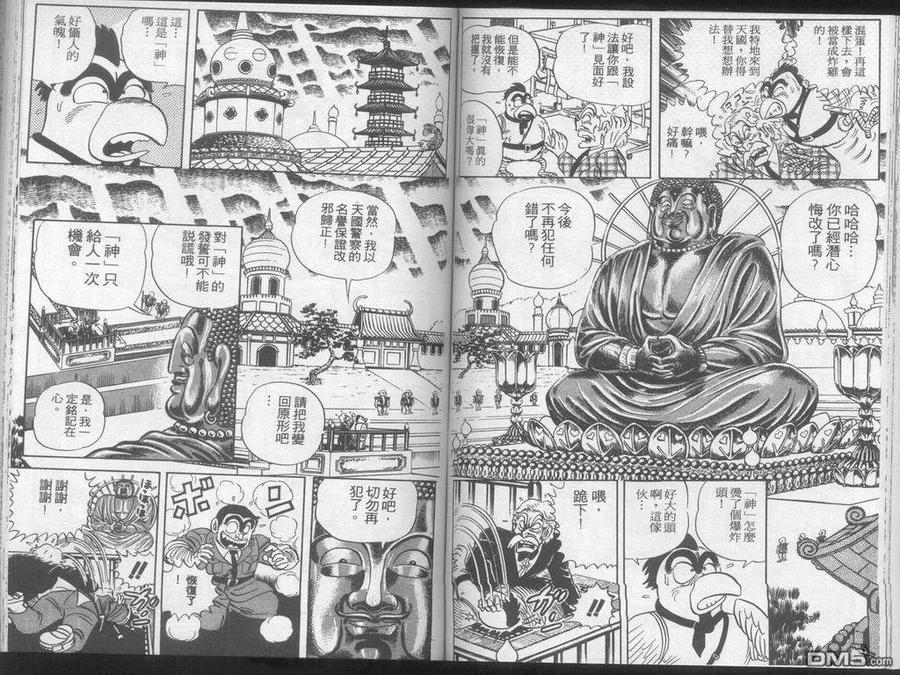 混蛋！再這
樣下去，會
被當成炸雞
的！
我特地來到
天國，你得
替我想想辦
法！
喂，
幹嘛？
好痛！
好吧，我設
法讓你跟
「神」見面好
了！
但是能不
能恢復，
我就沒有
把握了。
「神」真的
很偉大嗎？
哈哈哈…
你已經潛心
悔改了嗎？
今後
不再犯任何
錯了嗎？
「神」怎麼
燙了個爆炸
頭！
好大的頭
啊，這傢
伙…
喂，
跪下！
ガッ
ガッ
!!
這…
這是「神」
嗎…
好懾人的
氣魄！
當然，我以
天國警察的
名譽保證改
邪歸正！
對「神」的
發誓可不能
說謊哦！
「神」只
給人一次
機會。
是，我一
定銘記在
心。
請把我變
回原形吧
…
好吧，
切勿再
犯了。
ボン
恢復了
！
ほほほほ
謝謝，
謝謝！
!!
DM5.com